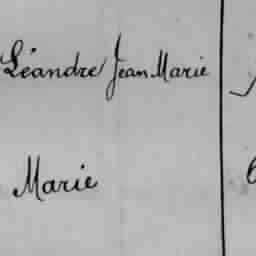 Léandre Jean Marie
Marie